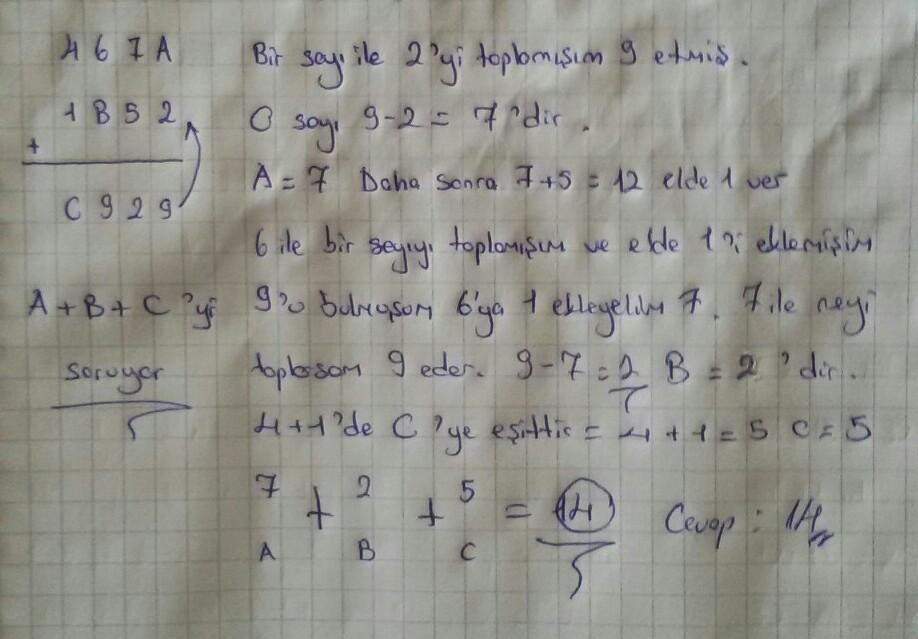 4 6 7 A
1 B 5 2
+
C 9 2 9
A + B + C 'yi
soruyor
Bir sayı ile 2'yi toplamışım 9 etmiş.
O sayı 9-2 = 7'dir.
A = 7 Daha sonra 7+5 = 12 elde 1 var
6 ile bir sayıyı toplamışım ve elde 1'i eklemişim
9'o bulmuşom 6'ya 1 ekleyelim 7. 7 ile neyi
toplarsam 9 eder. 9-7 = 2 B = 2 'dir.
4+1'de C 'ye eşittir = 4 + 1 = 5 C = 5
7 + 2 + 5 = 14 Cevap : 14
A B C